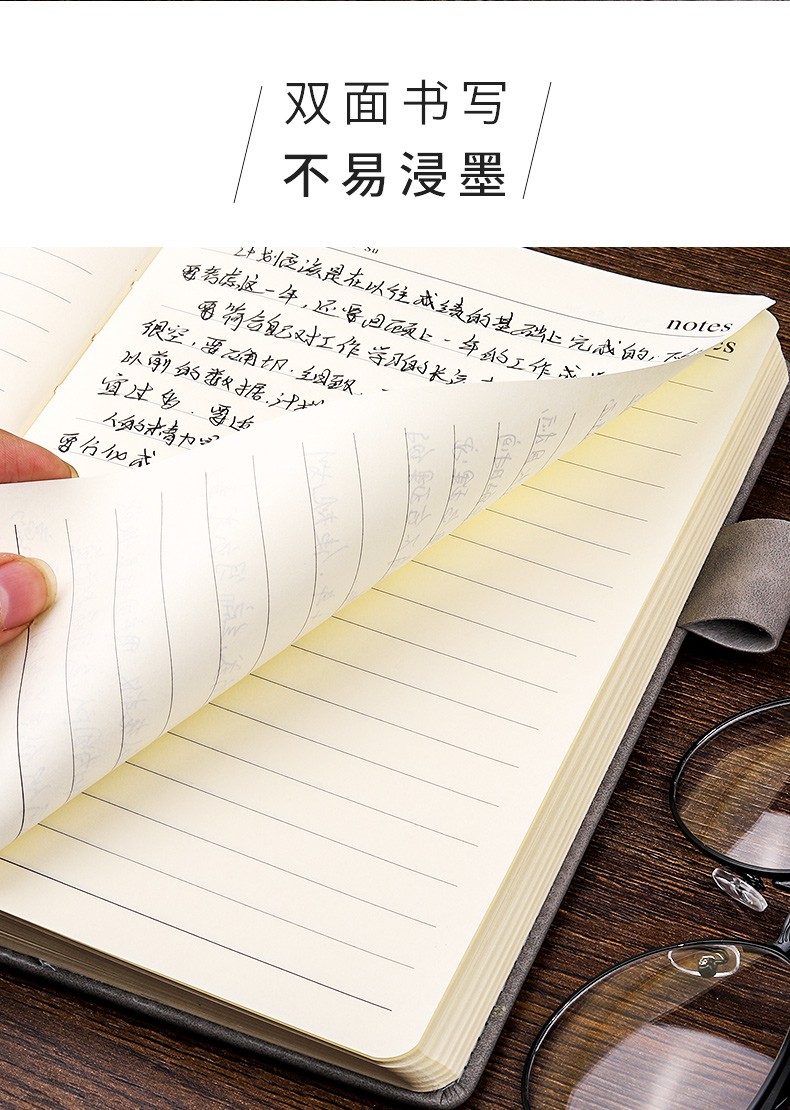 双面书写
不易浸墨
计划应该是在以往成绩的基础上完成的，
notes
要考虑这一年，还要回顾上一年的工作成
要符合自己对工作学习的长远
很空，要确切、细致
以前的数据，计划
宜过多，要
人的精力
要分